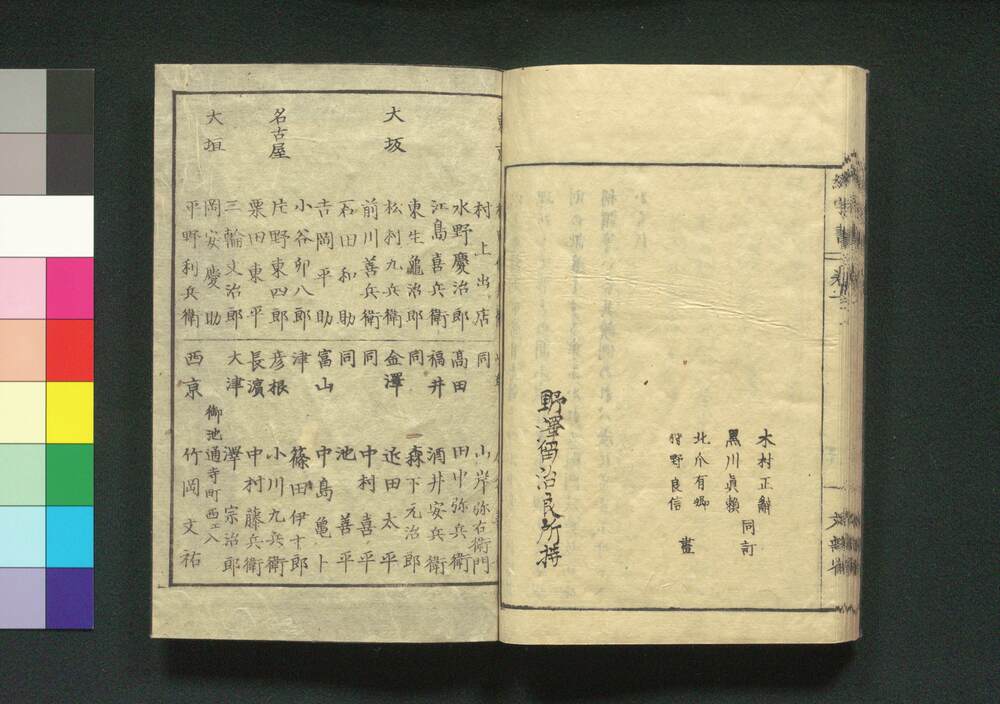 木村正辭
黒川眞頼 同訂
北爪有郷
狩野良信 畫
野澤留治良所持
村上出店
水野慶治郎
江島喜兵衛
大坂
東生亀治郎
松村九兵衛
前川善兵衛
石田和助
吉岡平助
小谷卯八郎
名古屋
片野東四郎
栗田東平
三輪文治郎
大垣
岡安慶助
平野利兵衛
同 山岸弥右衛門
髙田 田中弥兵衛
福井 酒井安兵衛
同 森下元治郎
金澤 近田太平
同 中村喜平
同 池善平
富山 中島亀卜
津 篠田伊十郎
彦根 小川九兵衛
長濱 中村藤兵衛
大津 澤宗治郎
御池通寺町西エ入
西京 竹岡文祐